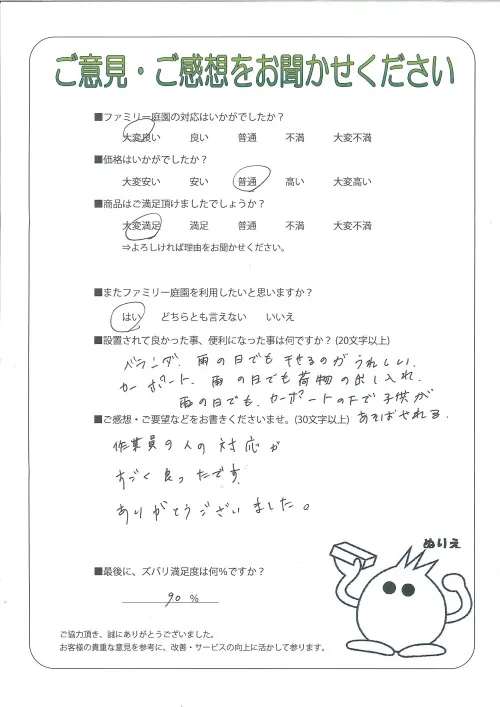 ご意見・ご感想をお聞かせください
■ファミリー庭園の対応はいかがでしたか？
大変良い 良い 普通 不満 大変不満
■価格はいかがでしたか？
大変安い 安い 普通 高い 大変高い
■商品はご満足頂けましたでしょうか？
大変満足 満足 普通 不満 大変不満
⇒よろしければ理由をお聞かせください。
■またファミリー庭園を利用したいと思いますか？
はい どちらとも言えない いいえ
■設置されて良かった事、便利になった事は何ですか？(20文字以上)
ベランダ、雨の日でも干せるのがうれしい。
カーポート、雨の日でも荷物の出し入れ、
雨の日でも、カーポートの下で子供が
あそばせれる。
■ご感想・ご要望などをお書きくださいませ。(30文字以上)
作業員の人の対応が
すごく良ったです
ありがとうございました。
ぬりえ
■最後に、ズバリ満足度は何％ですか？
90 %
ご協力頂き、誠にありがとうございました。
お客様の貴重な意見を参考に、改善・サービスの向上に活かして参ります。